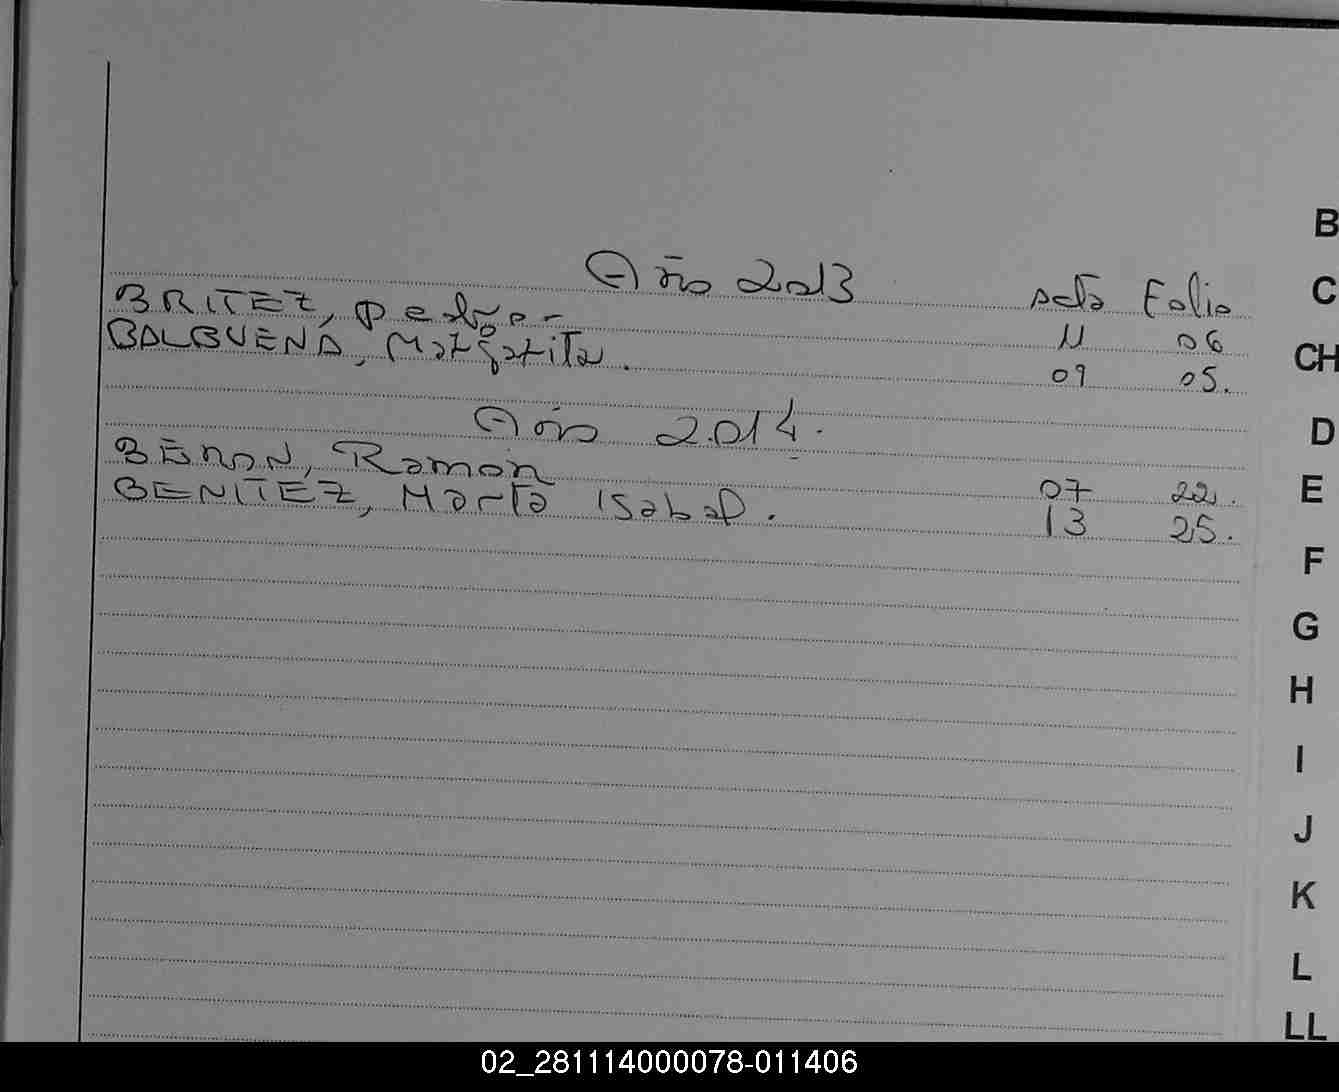 Año 2013 Acta Folio
BRITEZ, Pedro.- 11 06
BALBUENA, Margarita. 09 05.
Año 2014.
BENON, Ramon 07 22.
BENITEZ, Marta Isabel. 13 25.
B
C
CH
D
E
F
G
H
I
J
K
L
LL
02_281114000078-011406